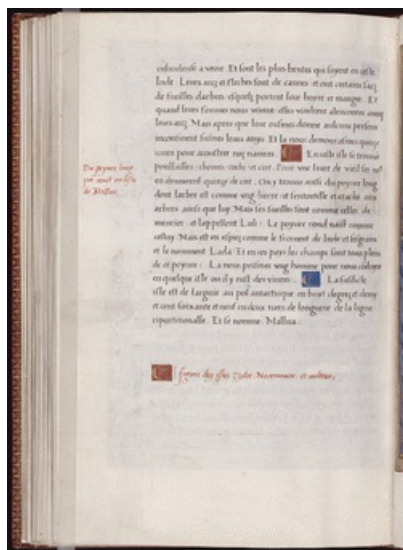 ridiculeuse a veoir. Et sont les plus bestes qui soyent en ceste
Inde. Leurs arcz et flaches sont de cannes et ont certains sacz
de fueilles darbres esquelz portent leur boyre et manger. Et
quand leurs femmes nous veirent elles vindrent alencontre avec
leurs arcz. Mais apres que leur eusmes donne aulcuns presens
incontinent fusmes leurs amys. Et la nous demourasmes quinze
iours pour acoustrer noz navieres. En ceste isle se treuve
poullailles chievres cochi et cire. Pour une livre de vieil fer
en donnoient quinze de cire. On y trouve aussi du poyvre long
dont larbre est comme ung lierre et sentortille et atache aux
arbres ainsi que luy. Mais ses fueilles sont comme celles du
meurier. et lappellent Luli. Le poyvre rond naist comme
cestuy. Mais est en espicz comme le froment de Inde et sesgrene
et le nomment Lada. Et en ce pays les champs sont tous plein
de ce poyvre. La nous prismes ung homme pour nous conduyre
en quelque isle ou il y eust des vivres. La susdicte
isle est de largeur au pol antarctique en huict degrez et demy
et cent soixante et neuf en deux tiers de longueur de la ligne
repartitionalle. Et se nomme. Mallua.
Du poyvre long
qui naist en lisle
de Mallua.
figure des isles Zolot Nocemamor. et aultres.